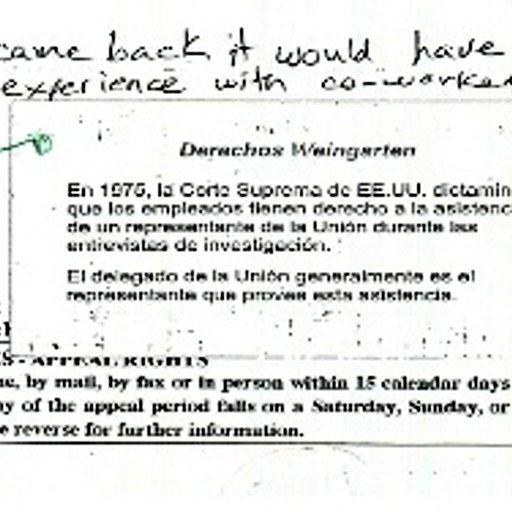 came back it would have
experience with co-worker
Derechos Weingarten
En 1975, la Corte Suprema de EE.UU. dictamin
que los empleados tienen derecho a la asistenc
de un representante de la Unión durante las
entrevistas de investigación.
El delegado de la Unión generalmente es el
representante que provee esta asistencia.
S - APPEAL RIGHTS
e, by mail, by fax or in person within 15 calendar days
y of the appeal period falls on a Saturday, Sunday, or
e reverse for further information.